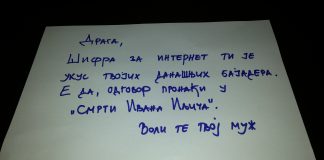 Драга,
Шифра за интернет ти је
укус твојих данашњих бајадера.
Е да, одговор пронађи у
„Смрти Ивана Илича".
Воли те твој муж